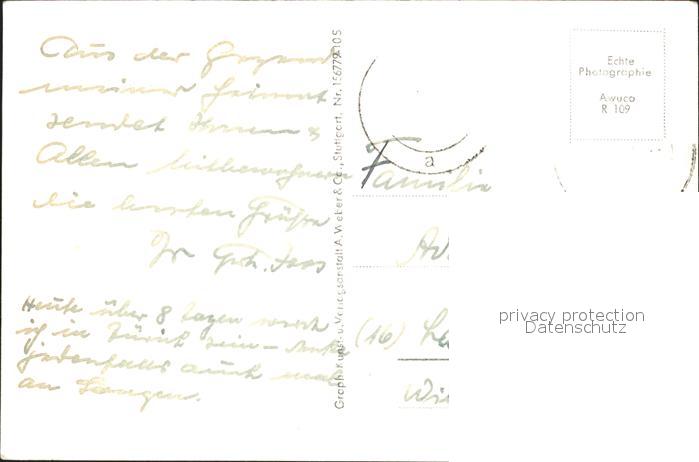 Aus der Gegend
meiner Heimat
sendet Ihnen &
Allen Mitbewohnern
die besten Grüße
Ihr
Heute über 8 Tagen werde
ich in Zürich sein –
jedenfalls auch mal
an Langen.
Graph. Kunst- u. Verlagsanstalt A. Weber & Co., Stuttgart, Nr.
a
Familie
(16) La
Echte
Photographie
Awuco
R 109
privacy protection
Datenschutz